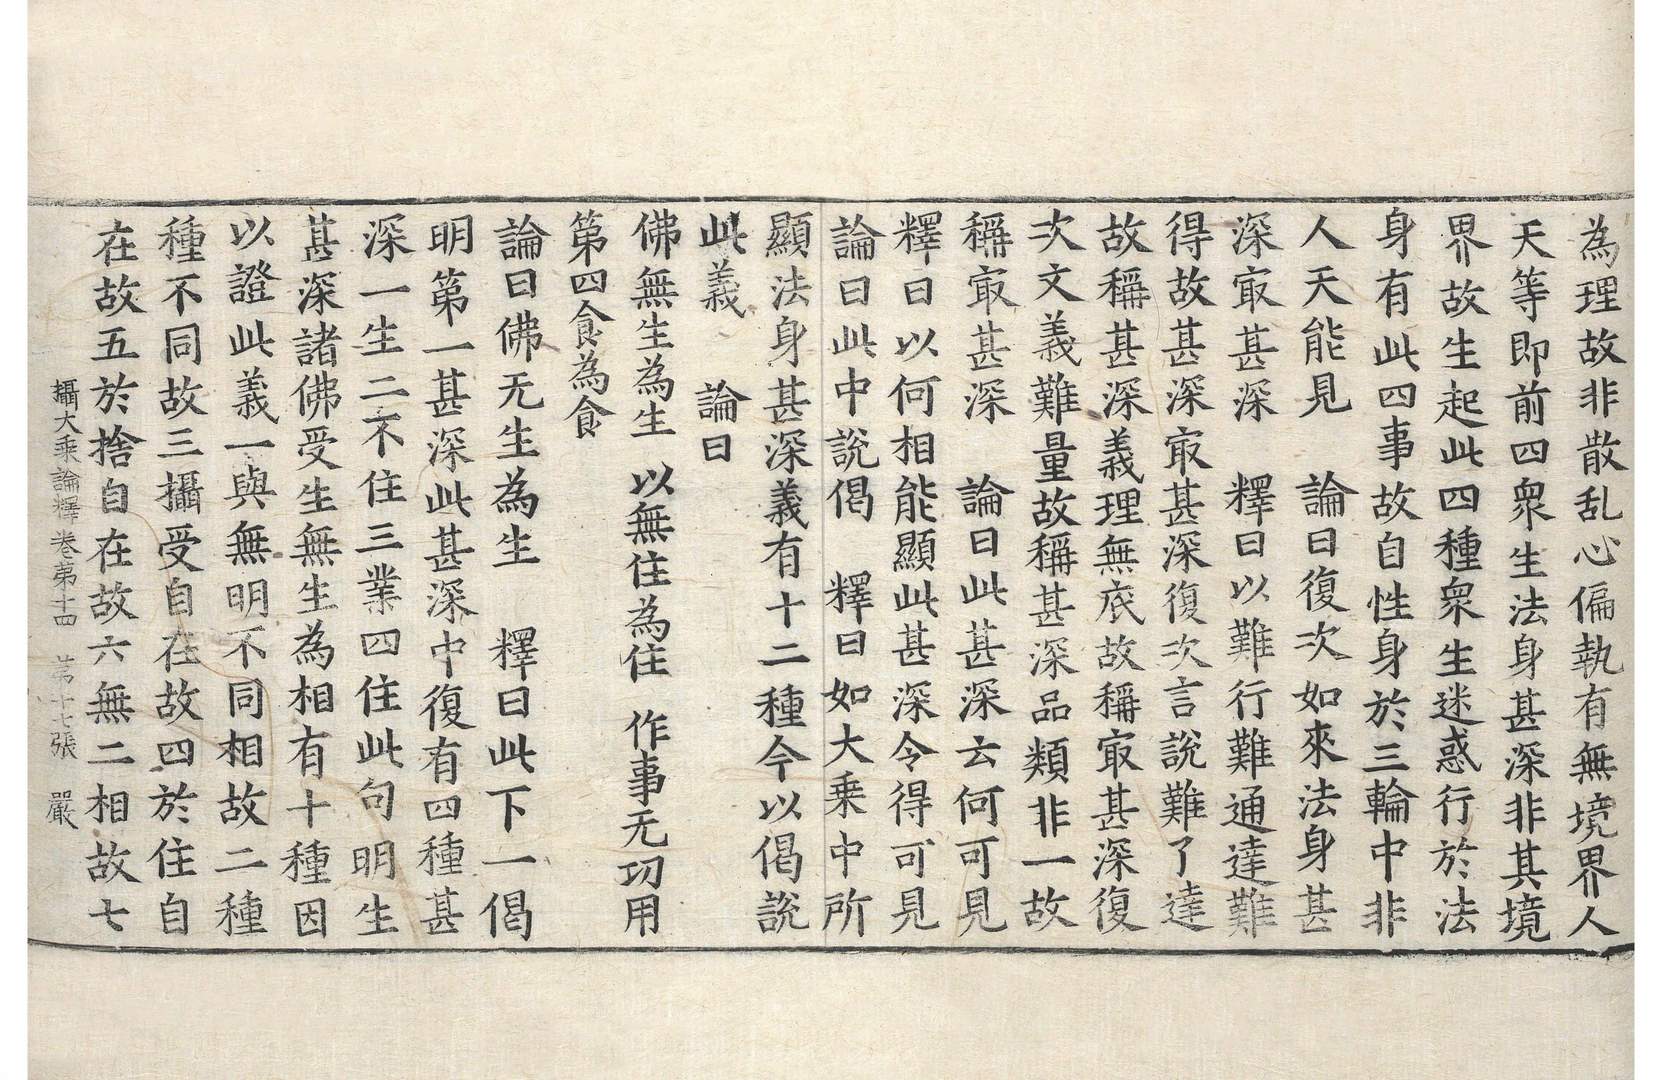 為理故非散乱心偏執有無境界人
天等即前四衆生法身甚深非其境
界故生起此四種衆生迷惑行於法
身有此四事故自性身於三輪中非
人天能見　論曰復次如來法身甚
深冣甚深　釋曰以難行難通達難
得故甚深冣甚深復次言說難了達
故稱甚深義理無底故稱冣甚深復
次文義難量故稱甚深品類非一故
稱冣甚深　論曰此甚深云何可見
釋曰以何相能顯此甚深令得可見
論曰此中說偈　釋曰如大乗中所
顯法身甚深義有十二種今以偈說
此義　論曰
佛無生為生　以無住為住　作事无功用
第四食為食
論曰佛无生為生　釋曰此下一偈
明第一甚深此甚深中復有四種甚
深一生二不住三業四住此句明生
甚深諸佛受生無生為相有十種因
以證此義一與無明不同相故二種
種不同故三攝受自在故四於住自
在故五於捨自在故六無二相故七
攝大乗論釋卷第十四　第十七張　嚴